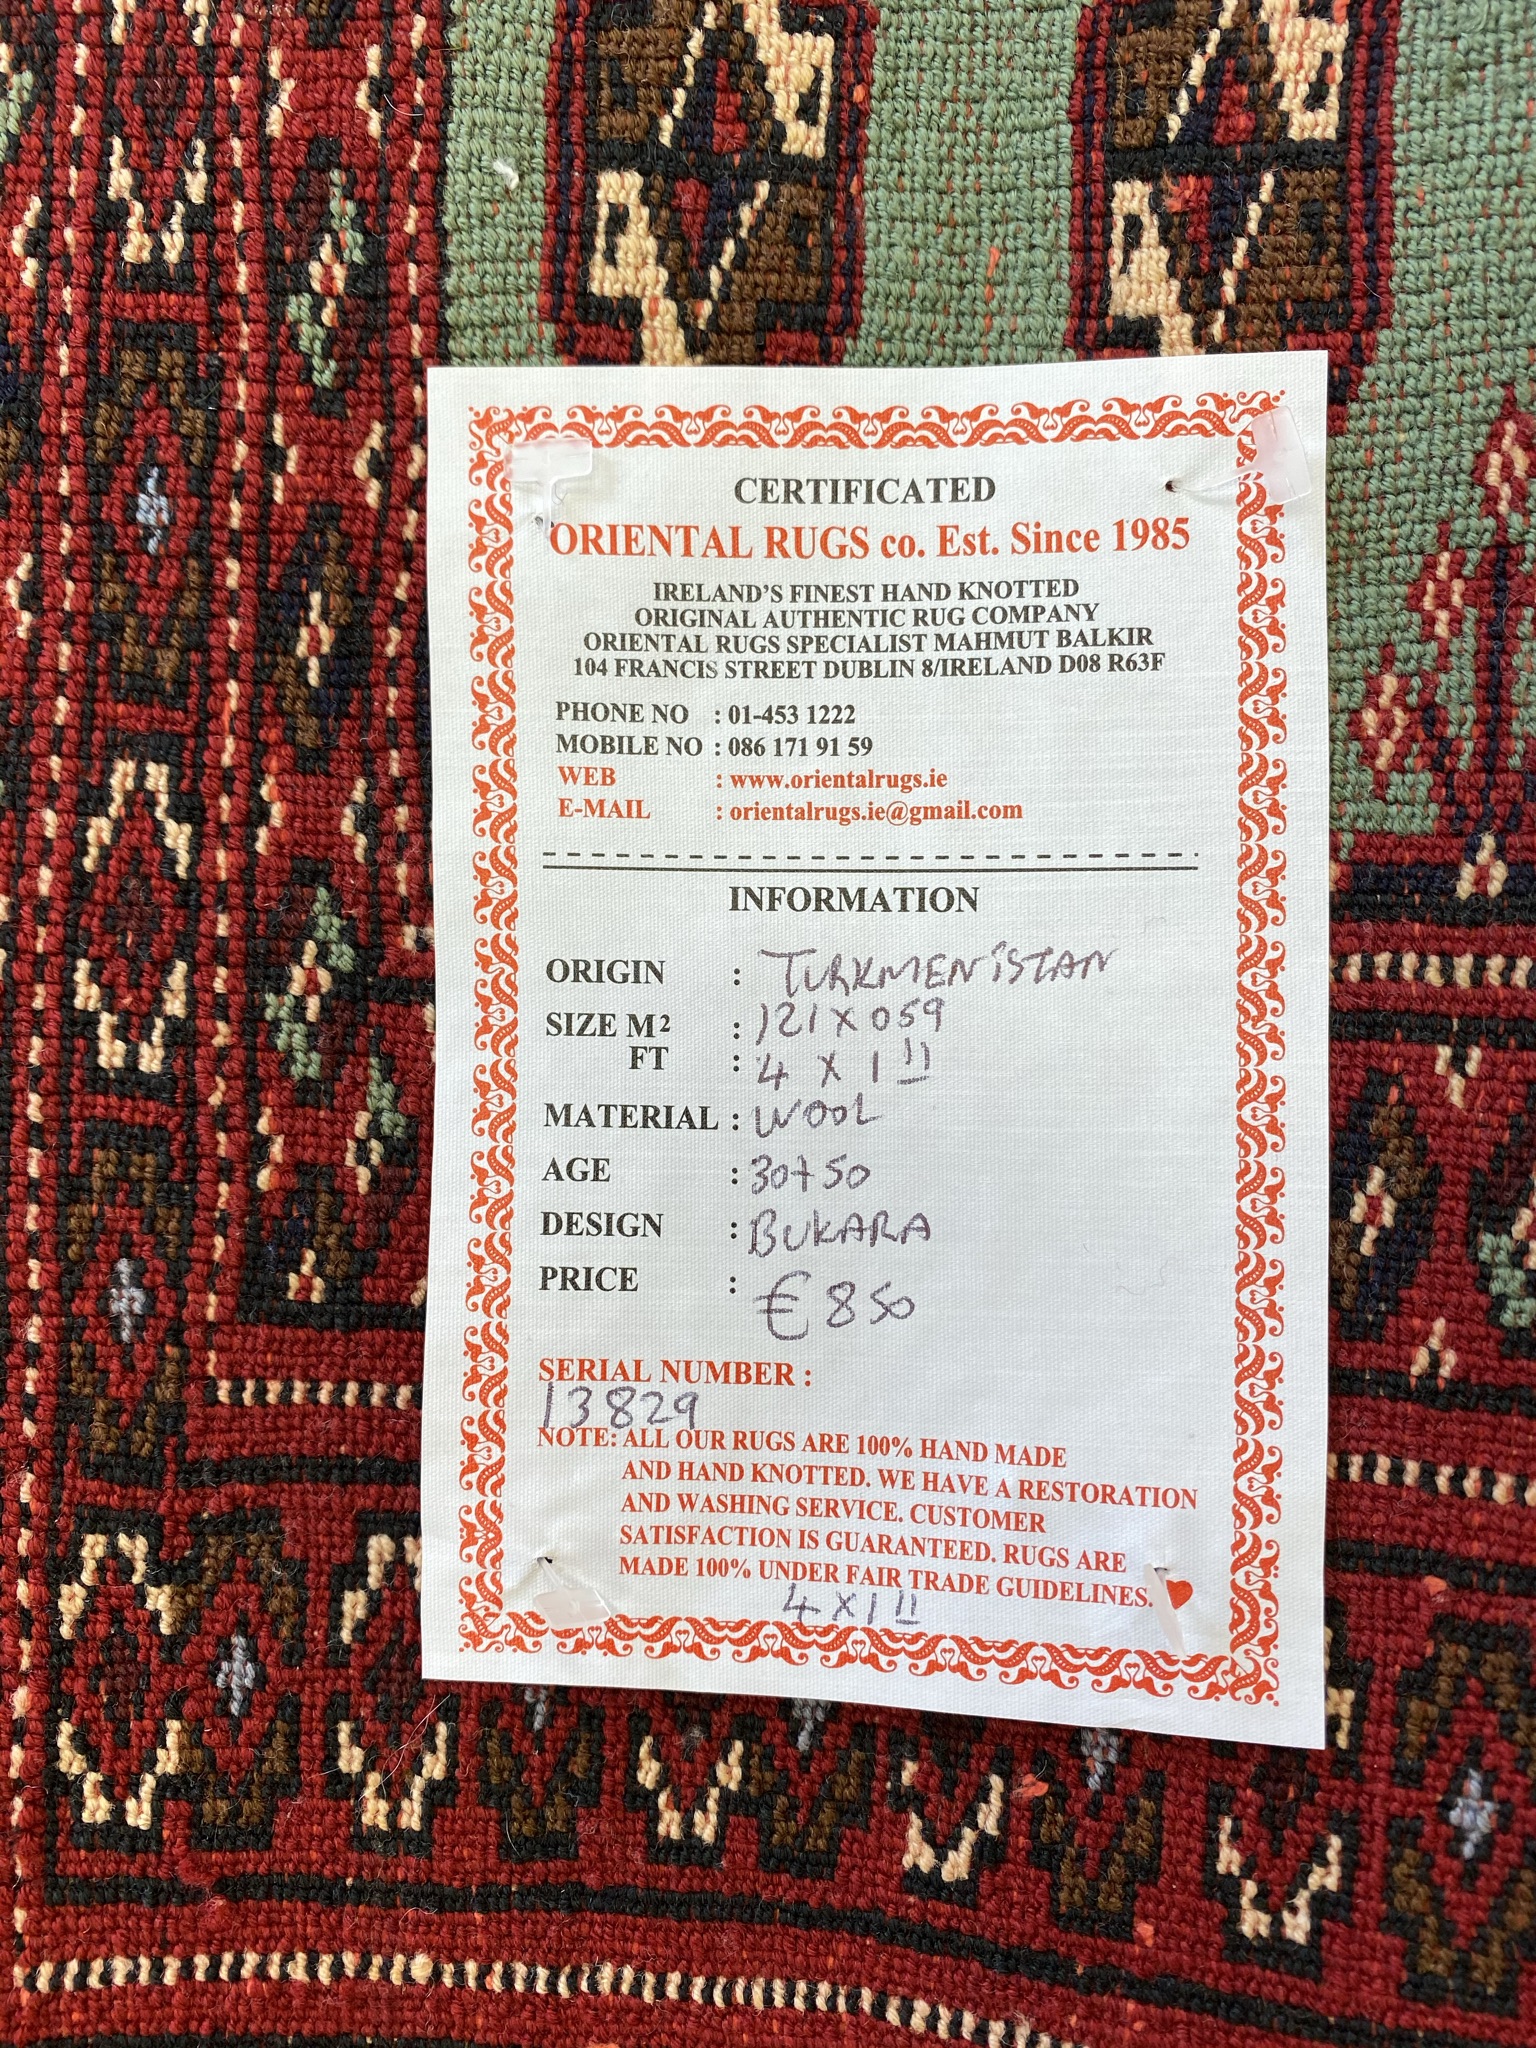 CERTIFICATED
ORIENTAL RUGS co. Est. Since 1985
IRELAND'S FINEST HAND KNOTTED
ORIGINAL AUTHENTIC RUG COMPANY
ORIENTAL RUGS SPECIALIST MAHMUT BALKIR
104 FRANCIS STREET DUBLIN 8/IRELAND D08 R63F
PHONE NO : 01-453 1222
MOBILE NO : 086 171 91 59
WEB : www.orientalrugs.ie
E-MAIL : orientalrugs.ie@gmail.com
INFORMATION
ORIGIN : TURKMENiSTAN
SIZE M² : 121 x 059
FT : 4 x 1 11
MATERIAL : WOOL
AGE : 30+50
DESIGN : BUKARA
PRICE : €850
SERIAL NUMBER :
13829
NOTE: ALL OUR RUGS ARE 100% HAND MADE
AND HAND KNOTTED. WE HAVE A RESTORATION
AND WASHING SERVICE. CUSTOMER
SATISFACTION IS GUARANTEED. RUGS ARE
MADE 100% UNDER FAIR TRADE GUIDELINES.
4 x 1 11